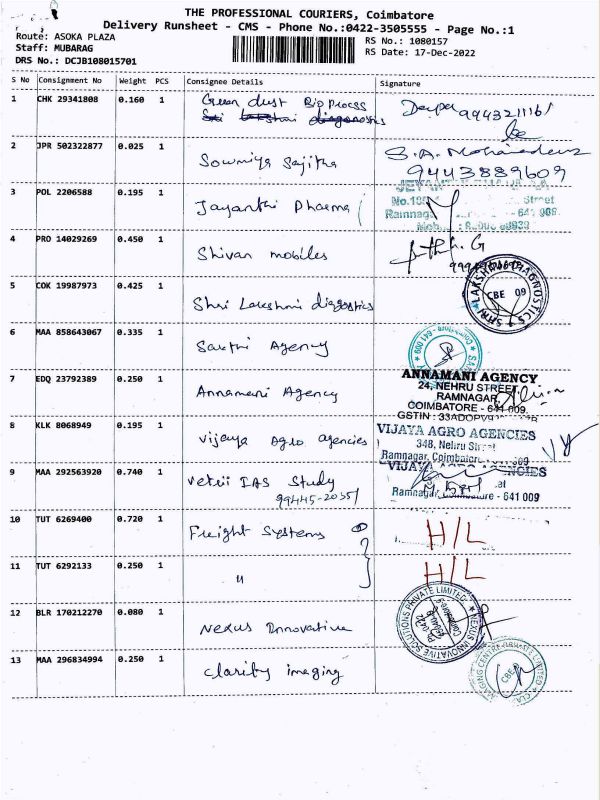 THE PROFESSIONAL COURIERS, Coimbatore
Delivery Runsheet - CMS - Phone No.:0422-3505555 - Page No.:1
Route: ASOKA PLAZA
Staff: MUBARAG
DRS No.: DCJB108015701
RS No.: 1080157
RS Date: 17-Dec-2022
S No Consignment No Weight PCS Consignee Details Signature
1 CHK 29341808 0.160 1 Green dust Bioprocess 9943211161
2 JPR 502322877 0.025 1 Sowmiya Sajitha 9443889609
3 POL 2206588 0.195 1 Jayanthi Pharma
Street
Ramnagar - 641 009.
4 PRO 14029269 0.450 1 Shivan mobiles
5 COK 19987973 0.425 1 Shri Lakshmi diagnostics SHRI LAKSHMI DIAGNOSTICS CBE 09
6 MAA 858643067 0.335 1 Sakthi Agency Coimbatore - 641 009
7 EDQ 23792389 0.250 1 Annamani Agency
ANNAMANI AGENCY
24, NEHRU STREET,
RAMNAGAR,
COIMBATORE - 641 009.
8 KLK 8068949 0.195 1 Vijaya Agro agencies
VIJAYA AGRO AGENCIES
34B, Nehru Street
Ramnagar, Coimbatore
9 MAA 292563920 0.740 1 Vetrii IAS Study
99445-20551
VIJAYA AGRO AGENCIES
Ramnagar, Coimbatore - 641 009
10 TUT 6269400 0.720 1 Freight Systems H/L
11 TUT 6292133 0.250 1 " H/L
12 BLR 170212270 0.080 1 Nexus Innovative NEXUS INNOVATIVE SOLUTIONS PRIVATE LIMITED
13 MAA 296834994 0.250 1 Clarity imaging CLARITY IMAGING CENTRE PRIVATE LIMITED CBE